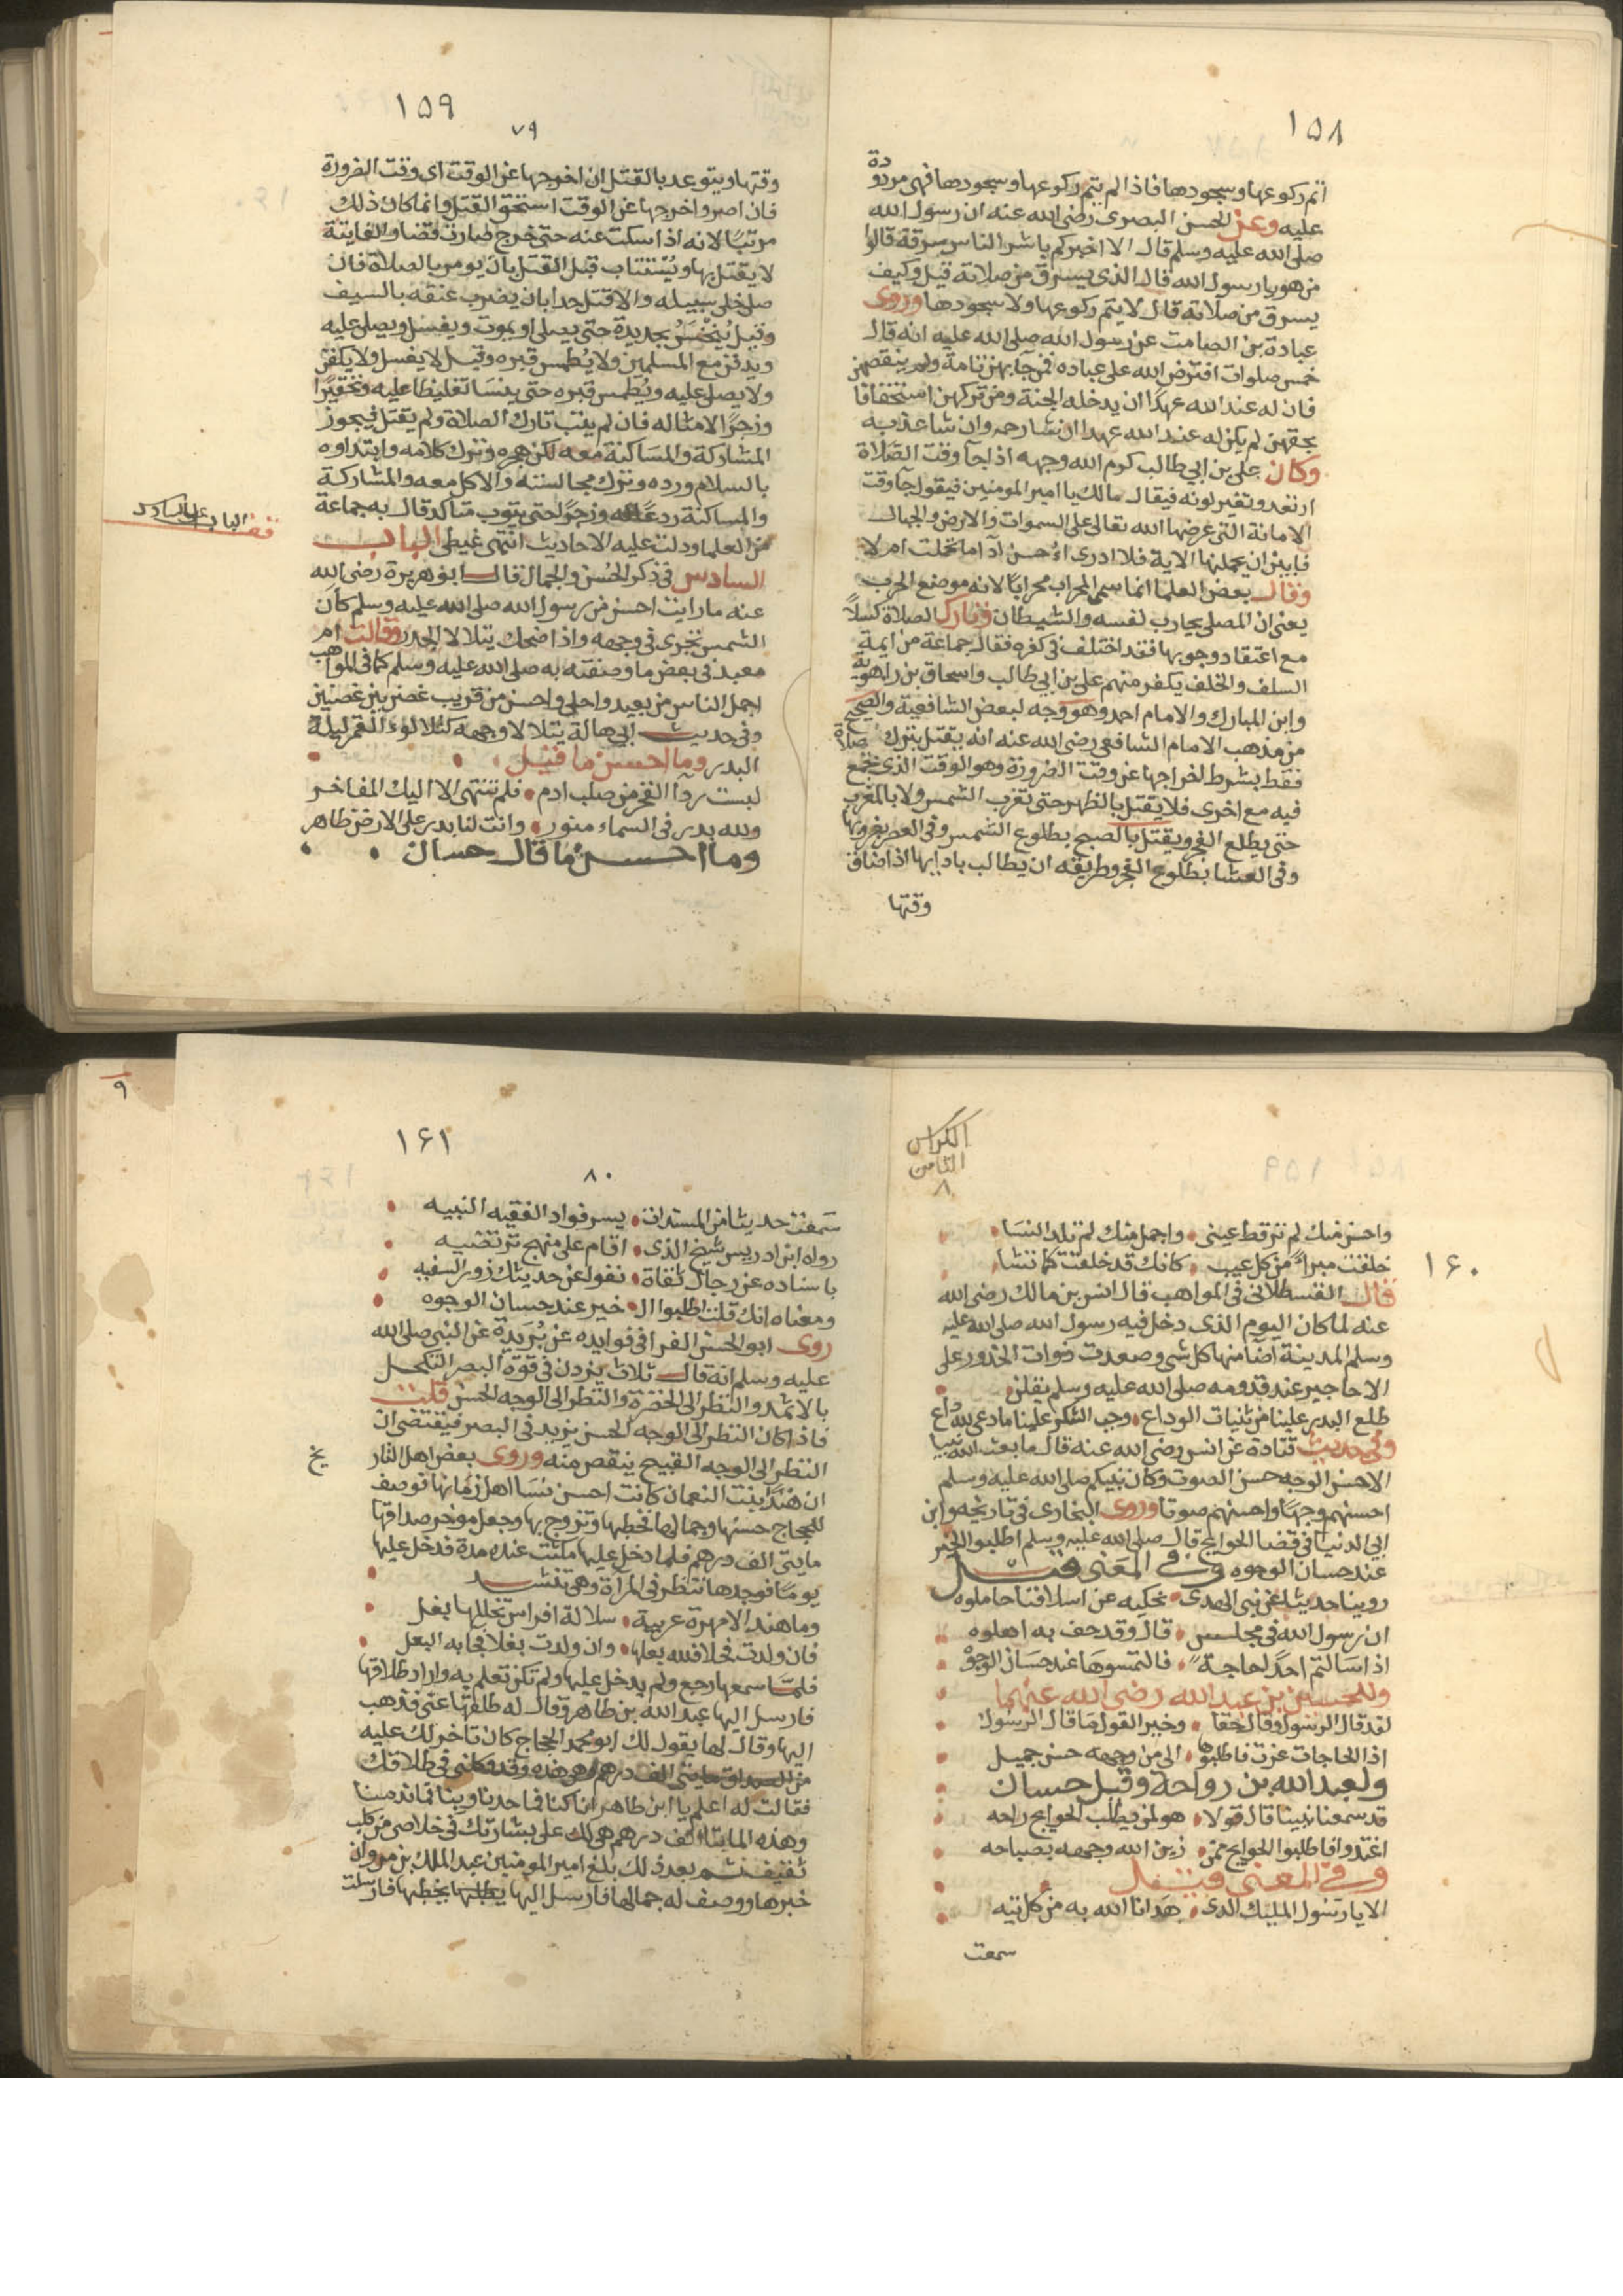 ١٥٨
اتم ركوعها وسجودها فاذا لم يتم ركوعها وسجودها فهى مردودة
عليه وعن الحسن البصرى رضى الله عنه ان رسول الله
صلى الله عليه وسلم قال الا اخبركم باشر الناس سرقة قالوا
من هو يا رسول الله قال الذى يسرق من صلاته قيل وكيف
يسرق من صلاته قال لا يتم ركوعها ولا سجودها وروى
عبادة بن الصامت عن رسول الله صلى الله عليه انه قال
خمس صلوات افترض الله على عباده فمن جآ بهن تامة ولم ينقصهن
فان له عند الله عهدًا ان يدخله الجنة ومن تركهن استخفافا
بحقهن لم يكن له عند الله عهدا ان شا رحمه وان شا عذبه
وكان على بن ابى طالب كرم الله وجهه اذا جآ وقت الصلاة
ارتعد وتغير لونه فيقال مالك يا امير المومنين فيقول جآ وقت
الامانة التى عرضها الله تعالى على السموات والارض والجبال
فابين ان يحملنها الاية فلا ادرى اءُحسن آدآ ما تحملت ام لا
وقال بعض العلما انما سمى المحراب محرابًا لانه موضع الحرب
يعنى ان المصلى يحارب لنفسه والشيطان وتارك الصلاة كسلاً
مع اعتقاد وجوبها فقد اختلف فى كفره فقال جماعة من ايمة
السلف والخلف يكفر منهم على بن ابى طالب واسحاق بن راهوية
وابن المبارك والامام احمد وهو وجه لبعض الشافعية والصحيح
من مذهب الامام الشافعى رضى الله عنه انه يقتل بترك صلاة
فقط بشرط اخراجها عن وقت الضرورة وهو الوقت الذى تجمع
فيه مع اخرى فلا يقتل بالظهر حتى تغرب الشمس ولا بالمغرب
حتى يطلع الفجر ويقتل بالصبح بطلوع الشمس وفى العصر بغروبها
وفى العشا بطلوع الفجر وطريقه ان يطالب بادايها اذا ضاق
وقتها
١٥٩
٧٩
وقتها ويتوعد بالقتل ان اخرجها عن الوقت اى وقت الضرورة
فان اصر واخرجها عن الوقت استحق القتل وانما كان ذلك
مرتبًا لانه اذا سكت عنه حتى خرج صارت قضا والفايتة
لا يقتل بها ويُسْتتاب قبل القتل بان يومر بالصلاة فان
صلى خلى سبيله والا قتل حدا بان يضرب عنقه بالسيف
وقيل يُنْخَسُ بحديدة حتى يصلى او يموت ويغسل ويصلى عليه
ويدفن مع المسلمين ولا يُطمس قبره وقيل لا يغسل ولا يكفن
ولا يصل عليه ويُطمس قبره حتى ينسا تغليظا عليه وتحقيرًا
وزجرًا لامثاله فان لم يتب تارك الصلاة ولم يقتل فيجوز
المشاركة والمساكنة معه لكن هجره وترك كلامه وابتداوه
بالسلام ورده وترك مجالسته والاكل معه والمشاركة
والمساكنة ردعًا له وزجرًا حتى يتوب متاكد قال به جماعة
من العلما ودلت عليه الاحاديث انتهى غيطى الباب
السادس فى ذكر الحُسن والجمال قال ابو هريرة رضى الله
عنه ما رايت احسن من رسول الله صلى الله عليه وسلم كان
الشمس تجرى فى وجهه واذا ضحك يتلالا الجدر وقالت ام
معبد فى بعض ما وصفته به صلى الله عليه وسلم كما فى المواهب
اجمل الناس من بعيد واحلى واحسن من قريب غصن بين غصنين
وفى حديث ابى هالة يتلالا وجهه كتلالؤ القمر ليلة
البدر وما احسن ما قيل
لبست ردآ الفخر من صلب ادم فلم تنتهى الا اليك المفاخر
ولله بدر فى السماء منور وانت لنا بدر على الارض ظاهر
وما احسن ما قال حسان
١٦٠
الكراس
الثامن
٨
واحسن منك لم تر قط عينى واجمل منك لم تلد النسا
خلقت مبراءً من كل عيب كانك قد خلقت كما تشا
قال القسطلانى فى المواهب قال انس بن مالك رضى الله
عنه لما كان اليوم الذى دخل فيه رسول الله صلى الله عليه
وسلم المدينة اضا منها كل شى وصعدت ذوات الخدور على
الاحاجير عند قدومه صلى الله عليه وسلم يقلن
طلع البدر علينا من ثنيات الوداع وجب الشكر علينا ما دعى لله داع
وفى حديث قتادة عن انس رضى الله عنه قال ما بعث الله نبيا
الا حسن الوجه حسن الصوت وكان نبيكم صلى الله عليه وسلم
احسنهم وجهًا واحسنهم صوتا وروى البخارى فى تاريخه وابن
ابى الدنيا فى قضا الحوايج قال صلى الله عليه وسلم اطلبوا الخير
عند حسان الوجوه وفى المعنى قيل
روينا حديثا عن نبى الهدى نحكيه عن اسلافنا حاملوه
ان رسول الله فى مجلس قال وقد حف به اهلوه
اذا سالتم احدًا حاجة فالتمسوها عند حسان الوجوهْ
وللحسن بن عبد الله رضى الله عنهما
لقد قال الرسول وقال حقا وخير القول ما قال الرسول
اذا الحاجات عزت فاطلبوها الى من وجهه حسن جميل
ولعبد الله بن رواحة وقيل حسان
قد سمعنا نبينا قال قولا هو لمن يطلب الحوايج راحه
اغتدوا فاطلبوا الحوايج ممن زين الله وجهه بصباحه
وفى المعنى قيل
الا يا رسول المليك الذى هدانا الله به من كل تيه
سمعت
١٦١
٨٠
٩
سمعت حديثا من المسندات يسر فواد الفقيه النبيه
رواه ابن ادريس شيخ الذى اقام على منهج ترتضيه
باسناده عن رجال ثقاة نفوا عن حديثك زور السفيه
ومعناه انك قلت اطلبوا ال خير عند حسان الوجوه
روى ابو الحسن الفرا فى فوايده عن بُرَيدة عن النبى صلى الله
عليه وسلم انه قال ثلاث يزدن فى قوة البصر التكحل
بالاثمد والنظر الى الخضرة والنظر الى الوجه الحسن قلت
فاذا كان النظر الى الوجه الحسن يزيد فى البصر فيقتضى ان
النظر الى الوجه القبيح ينقص منه وروى بعض اهل التار
يخ
ان هندًا بنت النعمان كانت احسن نسا اهل زمانها فوصف
للحجاج حسنها وجمالها فخطبها وتزوج بها وجعل موخر صداقها
مايتى الف درهم فلما دخل عليها مكثت عنده مدة فدخل عليها
يومًا فوجدها تنظر فى المراة وهى تنشد
وما هند الا مهرة عربية سلالة افراس تخللها بغل
فان ولدت فحلا فلله بعلها وان ولدت بغلا فجا به البعل
فلما سمعها رجع ولم يدخل عليها ولم تكن تعلم به واراد طلاقها
فارسل اليها عبد الله بن طاهر وقال له طلقها عنى فذهب
اليها وقال لها يقول لك ابو محمد الحجاج كان تاخر لك عليه
من الصداق مايتى الف درهم وهى هذه وقد وكلنى فى طلاقك
فقالت له اعلم يا ابن طاهر انا كنا فما حمدنا وبِنَّا فما ندمنا
وهذه المايتا الف درهم هى لك على بشارتك فى خلاصى من كلب
ثقيف ثم بعد ذلك بلغ امير المومنين عبد الملك بن مروان
خبرها ووصف له جمالها فارسل اليها يخطبها فارسلت